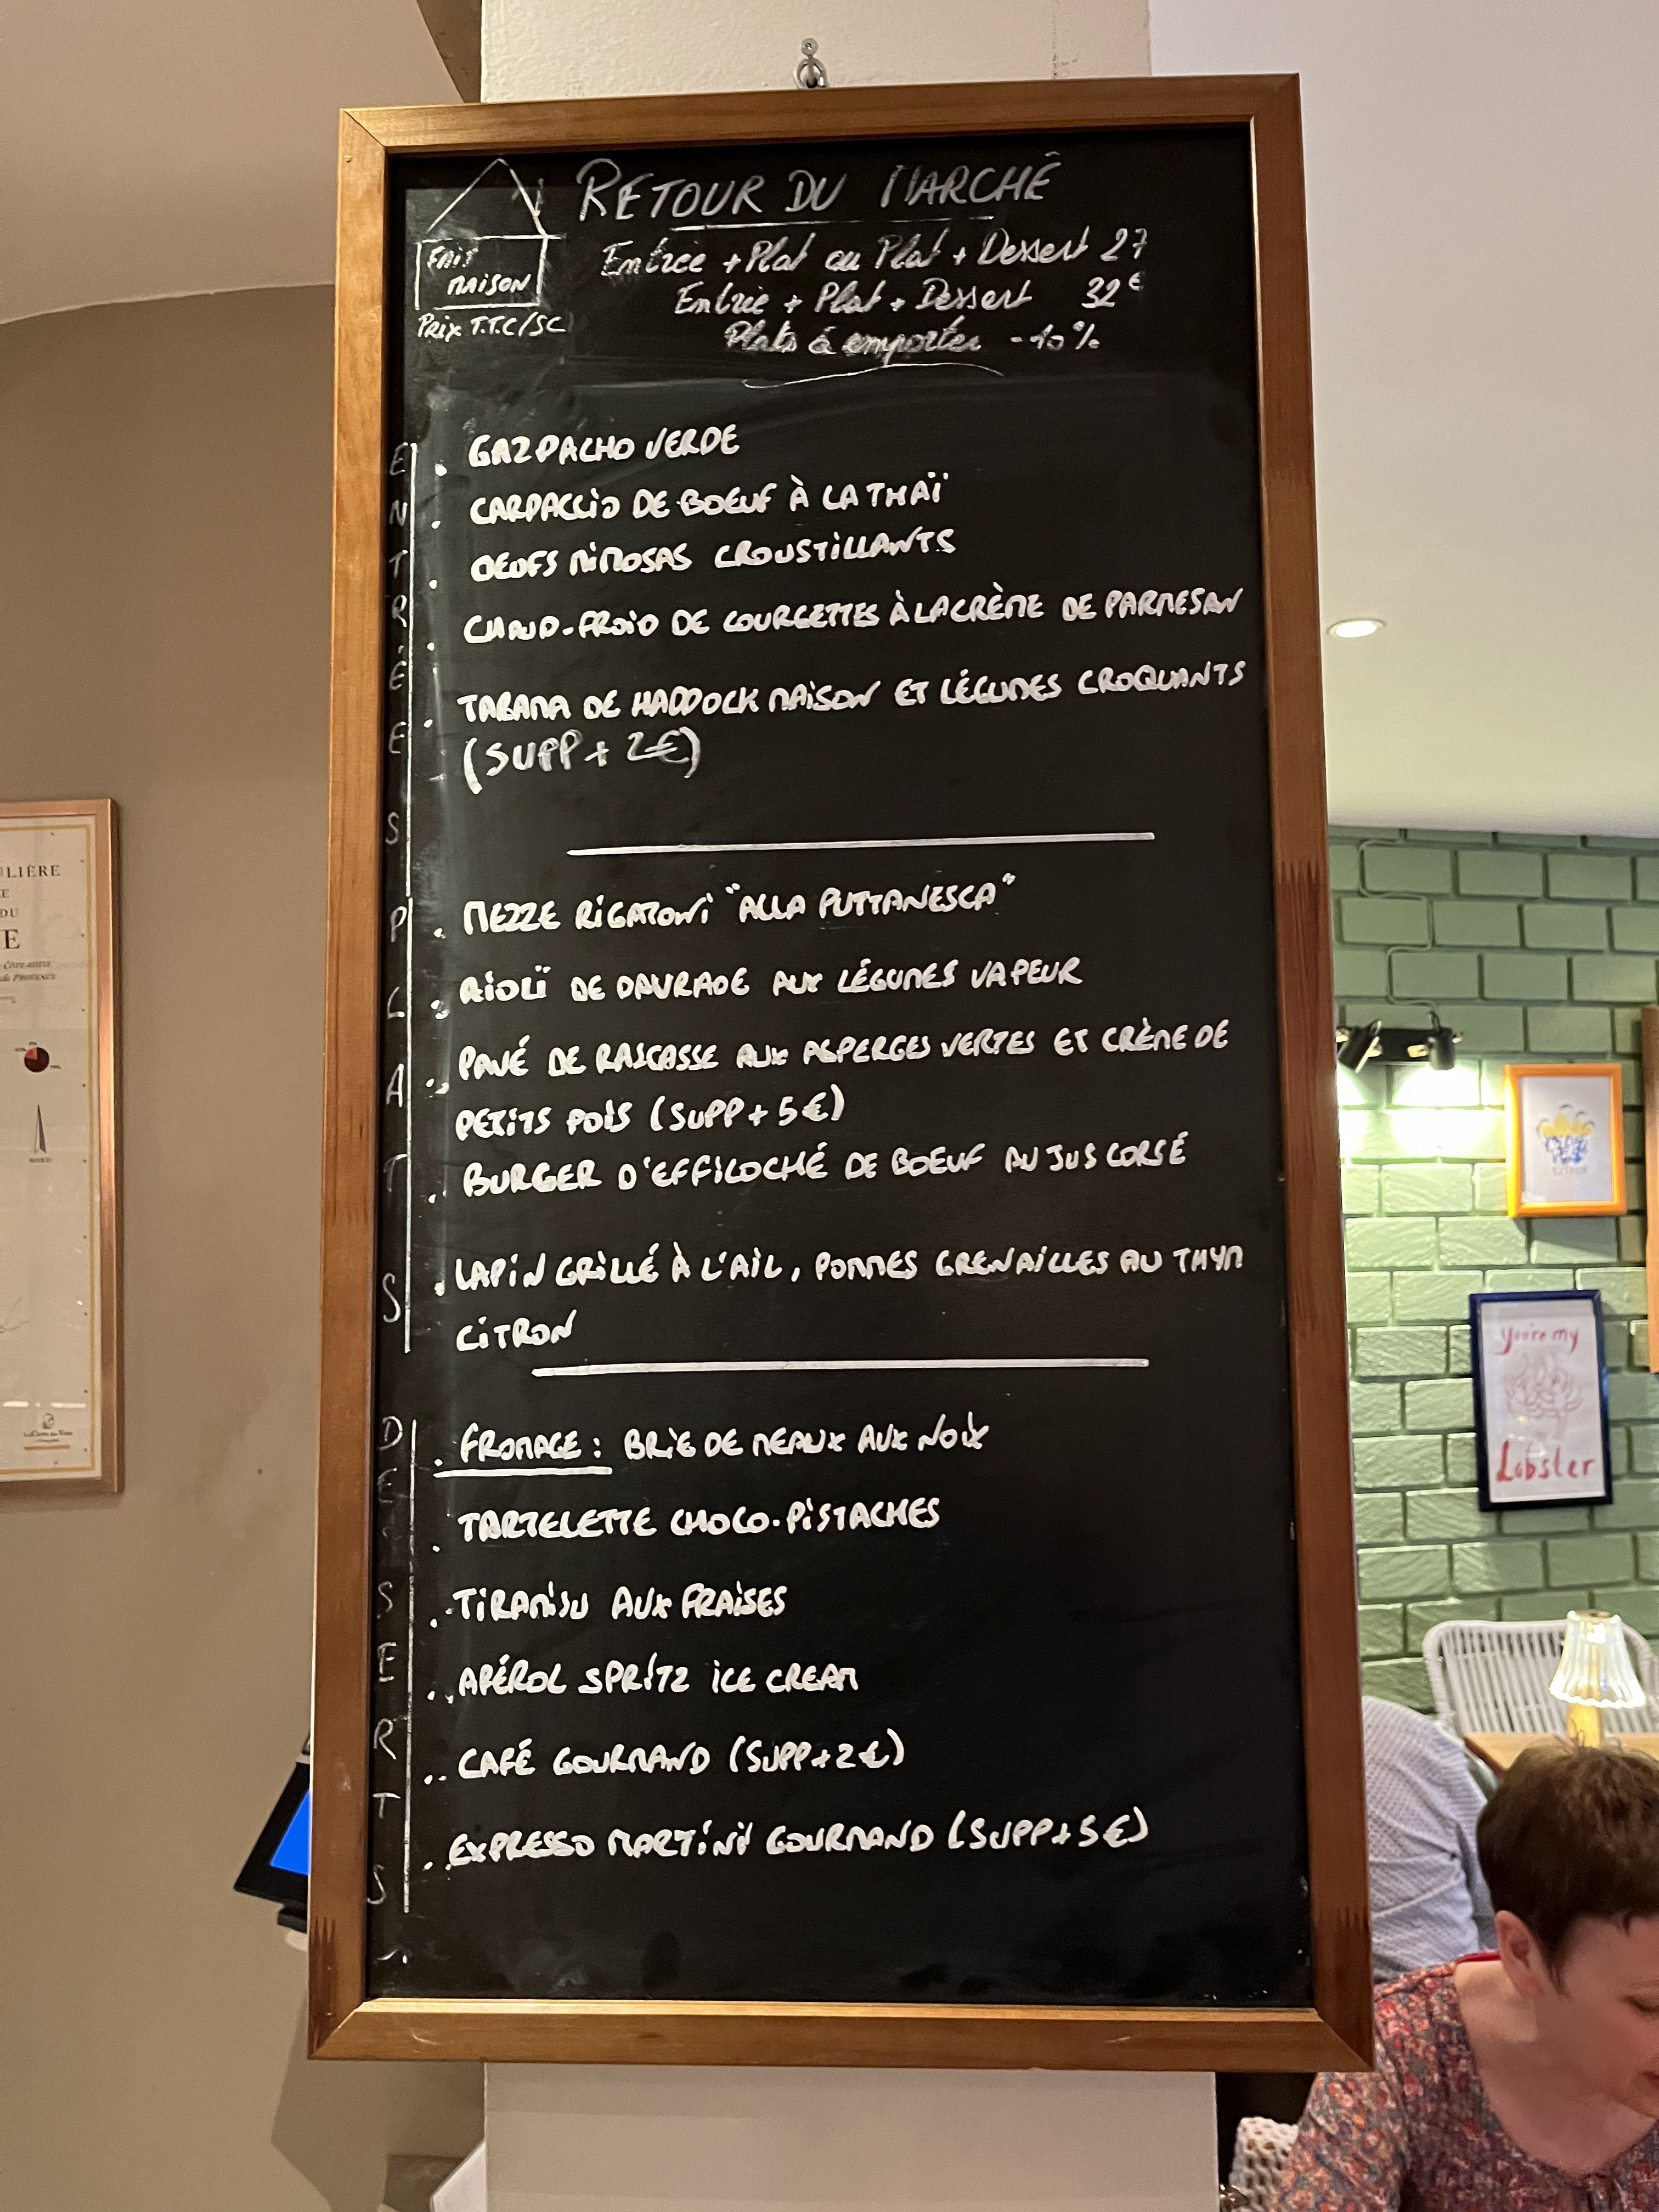 RETOUR DU MARCHÉ
FAIT
MAISON
PRIX T.T.C/SC
Entrée + Plat ou Plat + Dessert 27
Entrée + Plat + Dessert 32€
Plats à emporter -10%
ENTRÉES
. GAZPACHO VERDE
. CARPACCIO DE BOEUF À LA THAÏ
. OEUFS MIMOSAS CROUSTILLANTS
. CHAUD-FROID DE COURGETTES À LA CRÈME DE PARMESAN
. TARAMA DE HADDOCK MAISON ET LÉGUMES CROQUANTS
(SUPP + 2€)
PLATS
. MEZZE RIGATONI "ALLA PUTTANESCA"
. AÏOLÏ DE DAURADE AUX LÉGUMES VAPEUR
. PAVÉ DE RASCASSE AUX ASPERGES VERTES ET CRÈME DE
PETITS POIS (SUPP + 5€)
. BURGER D'EFFILOCHÉ DE BOEUF AU JUS CORSÉ
. LAPIN GRILLÉ À L'AIL, POMMES GRENAILLES AU THYM
CITRON
DESSERTS
. FROMAGE : BRIE DE MEAUX AUX NOIX
. TARTELETTE CHOCO-PISTACHES
. TIRAMISU AUX FRAISES
. APÉROL SPRITZ ICE CREAM
. CAFÉ GOURMAND (SUPP + 2€)
. EXPRESSO MARTINI GOURMAND (SUPP + 5€)
ULIÈRE
DU
E
CÔTE-ROTIE
de PROVENCE
NORD
CITRON
you're my
Lobster